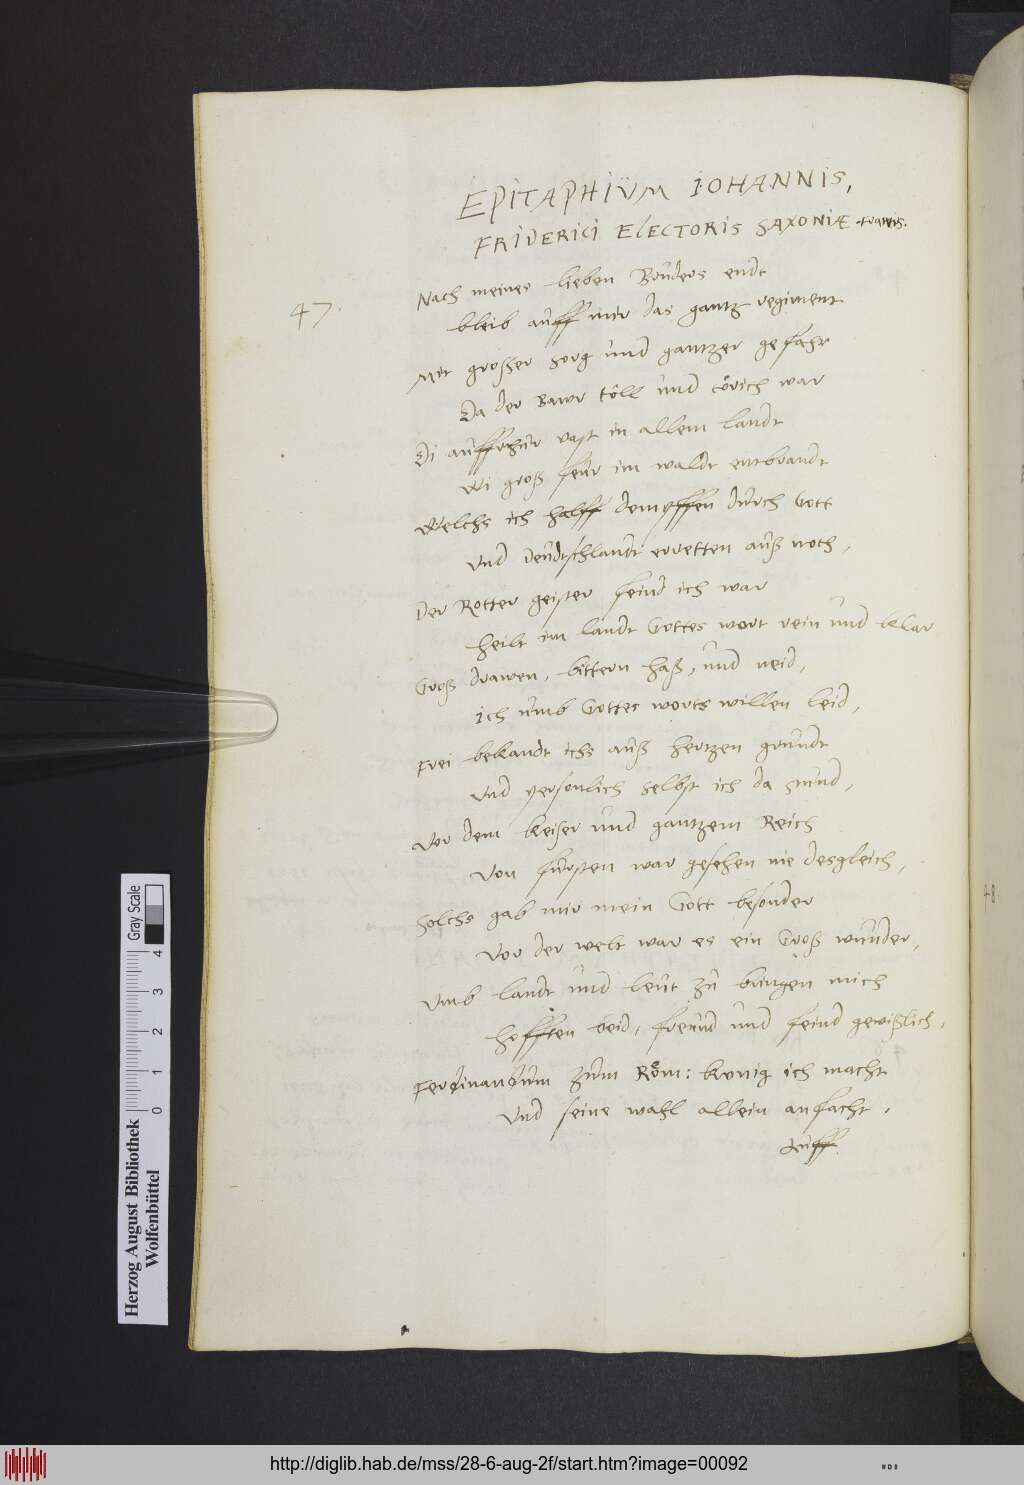 EPITAPHIUM IOHANNIS,
FRIDERICI ELECTORIS SAXONIÆ
47.
Nach meines lieben Bruders endt
bleib auff mir das gantz regiment
Mit großer sorg und gantzer gefahr
Da der Bawr töll und törich war
Di auffrhur vast in allem landt
Wi groß feur im waldt entbrandt
Welchs ich halff dempffen durch Gott
Und Deudtschlandt erretten auß noth,
Der Rotter geister feind ich war
heilt im landt Gottes wort rein und klar
Groß drawen, bittern haß, und neid,
ich umb Gottes worts willen leid,
Frei bekandt ichs auß hertzen grundt
Und personlich selbst ich da stund,
Vor dem keiser und gantzem Reich
Von fursten war gesehen nie desgleich,
Solchs gab mir mein Gott besonder
Vor der welt war es ein Groß wunder,
Umb landt und leut zu bringen mich
hofften beid, freund und feind gewißlich,
Ferdinandum zum Röm: konig ich macht
Und seine wahl allein anfacht,
48.
Herzog August Bibliothek
Wolfenbüttel
0 1 2 3 4
Gray Scale
http://diglib.hab.de/mss/28-6-aug-2f/start.htm?image=00092